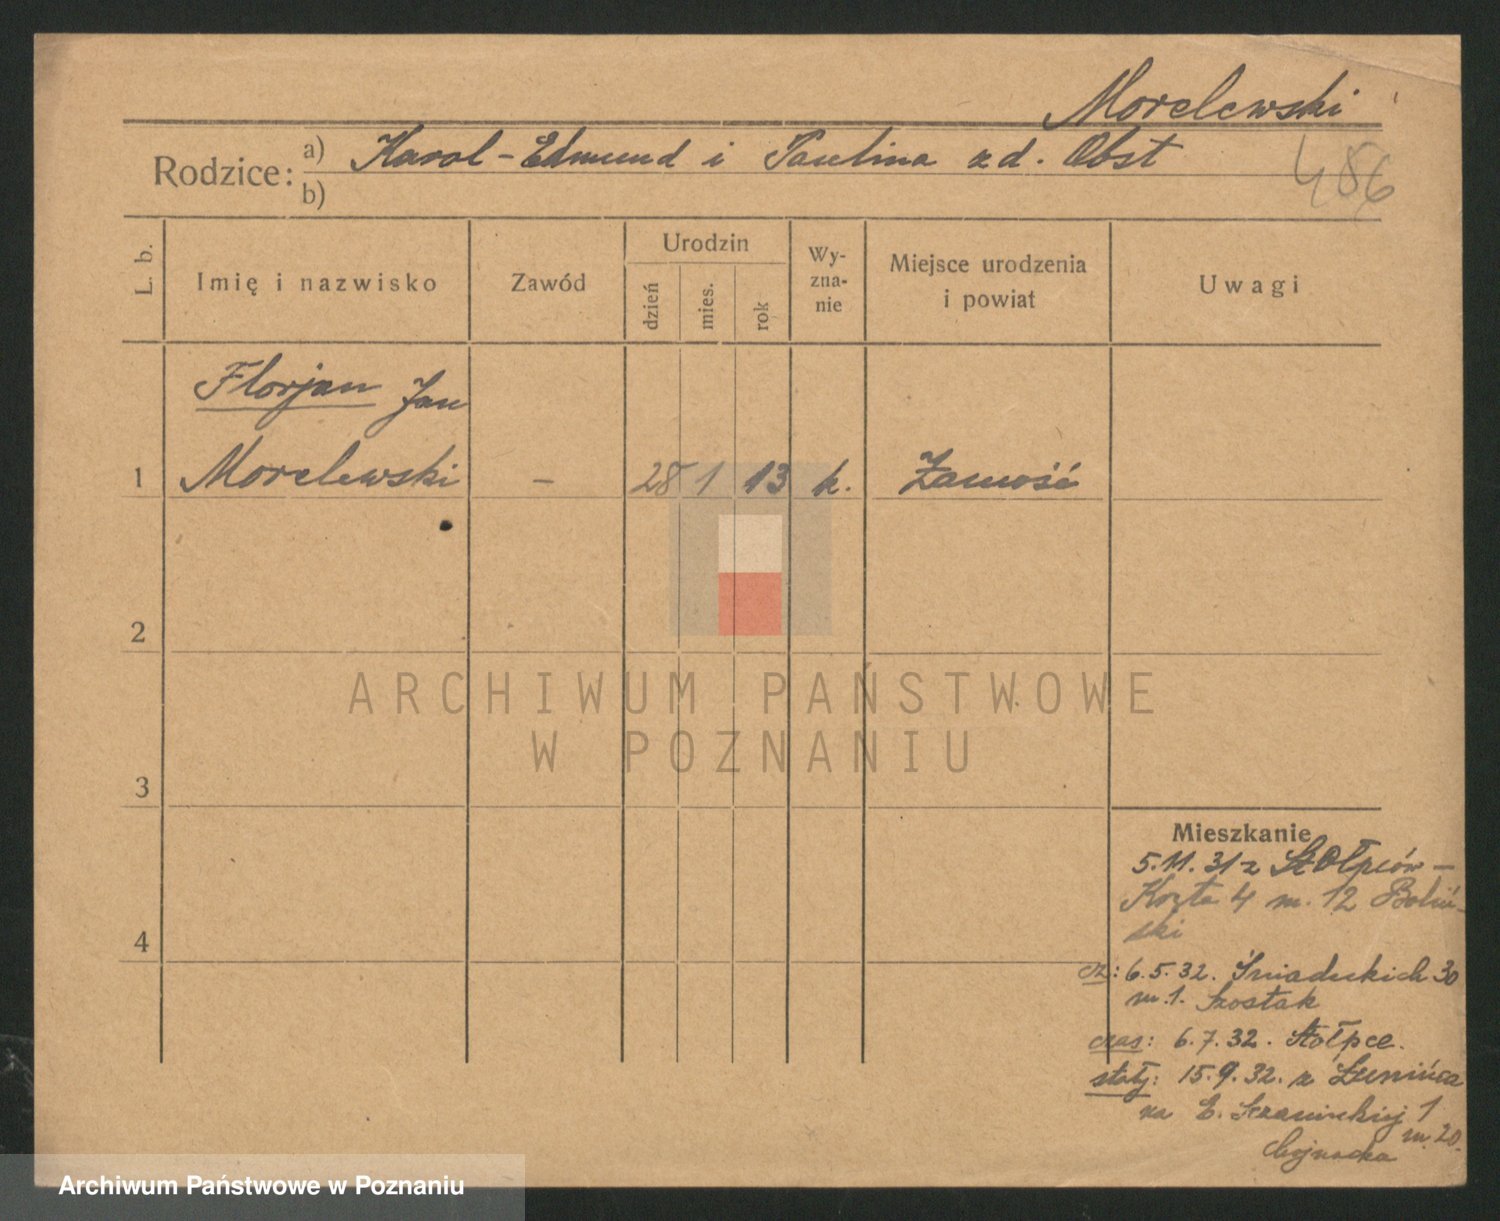 Morelewski
Rodzice: a) Karol-Edmund i Paulina zd. Obst
b)
486
L. b.
Imię i nazwisko
Zawód
Urodzin
dzień
mies.
rok
Wy-
zna-
nie
Miejsce urodzenia
i powiat
Uwagi
Florjan Jan
1 Morelewski – 28 1 13 k. Zamość
2
3
4
ARCHIWUM PAŃSTWOWE
W POZNANIU
Mieszkanie
5.11.31 z Stołpców –
4 m. 12 Boliń-
ski
cz: 6.5.32. Śniadeckich 30
m.1. Szostak
czas: 6.7.32. Stołpce.
stały: 15.9.32. z Łunińca
na E. Sczanieckiej 1
m. 20.
Chojnacka
Archiwum Państwowe w Poznaniu